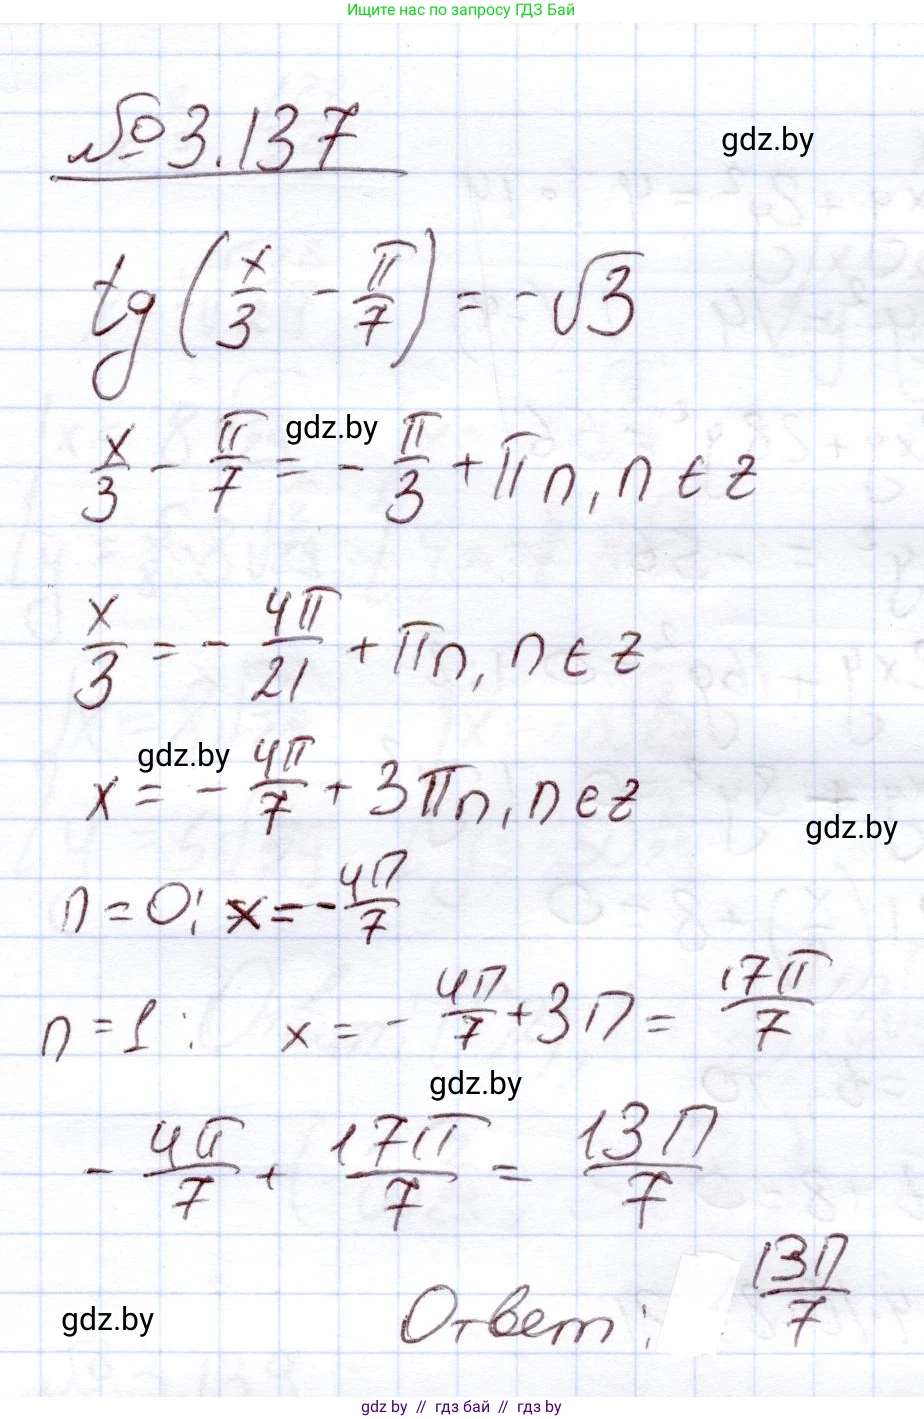 Ищите нас по запросу ГДЗ Бай
№3.137
gdz.by
tg(x/3 - π/7) = -√3
gdz.by
x/3 - π/7 = - π/3 + πn, n ∈ z
x/3 = - 4π/21 + πn, n ∈ z
gdz.by
x = - 4π/7 + 3πn, n ∈ z
gdz.by
n = 0; x = - 4π/7
n = 1: x = - 4π/7 + 3π = 17π/7
gdz.by
- 4π/7 + 17π/7 = 13π/7
gdz.by
Ответ: 13π/7
gdz.by // гдз бай // гдз by